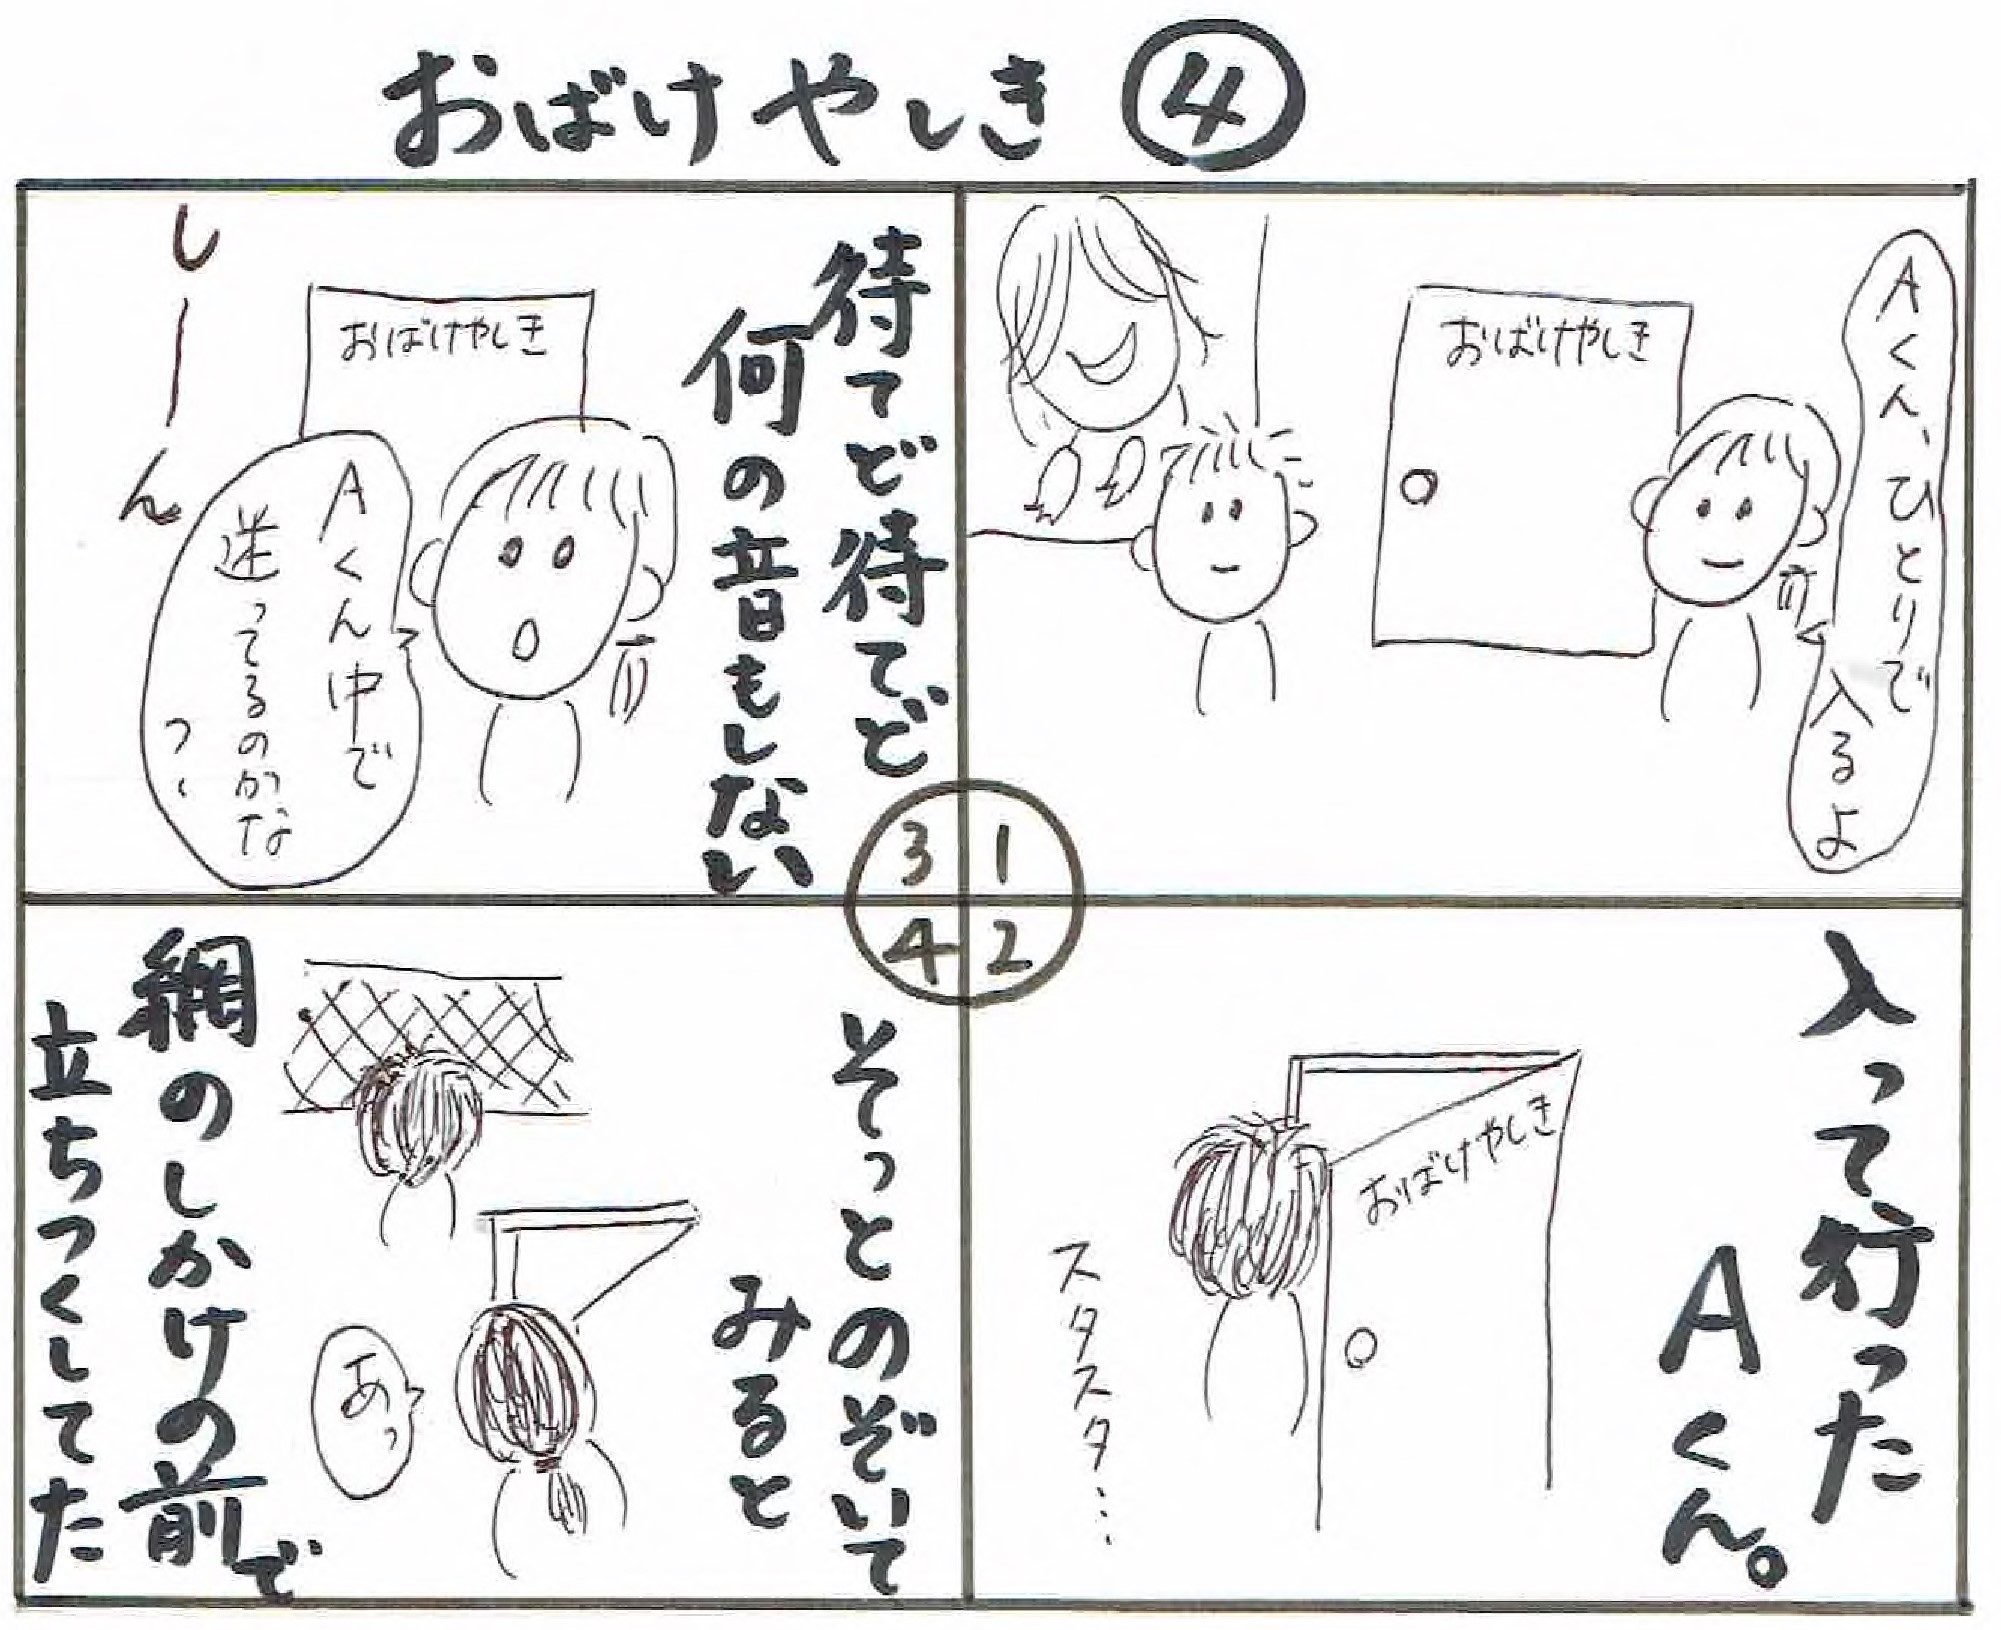 おばけやしき④
Aくん、ひとりで
入るよ
おばけやしき
1
入って行った
Aくん。
おばけやしき
スタスタ…
2
待てど待てど
何の音もしない
おばけやしき
Aくん中で
迷ってるのかな
しーん
3
そっとのぞいて
みると
あっ
網のしかけの前で
立ちつくしてた
4